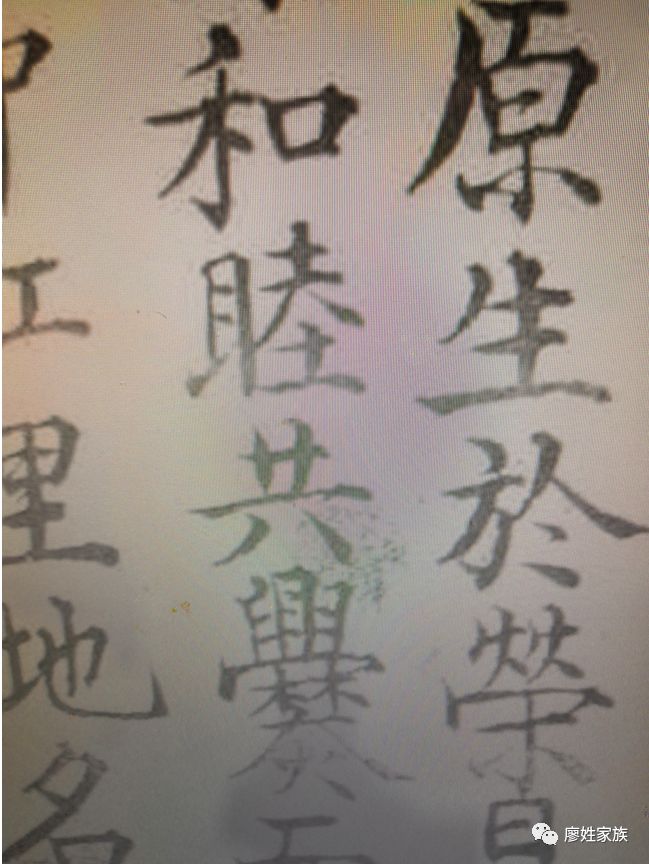 原生於榮
和睦共爨
里地名
廖姓家族